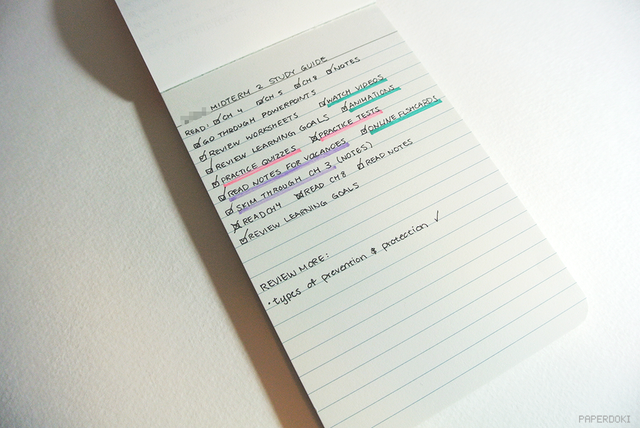 MIDTERM 2 STUDY GUIDE
READ: ☑CH 4 ☑CH 5 ☑CH 8 ☑NOTES
☑GO THROUGH POWERPOINTS
☑REVIEW WORKSHEETS ☑WATCH VIDEOS
☑REVIEW LEARNING GOALS ☑ANIMATIONS
☑PRACTICE QUIZZES ☑PRACTICE TESTS
☑READ NOTES FOR VOLCANOES ☑ONLINE FLSHCARDS
☑SKIM THROUGH CH 3 (NOTES)
☑READ CH4 ☑READ CH8 ☑READ NOTES
☑REVIEW LEARNING GOALS
REVIEW MORE:
• types of prevention & protection ✓
PAPERDOKI